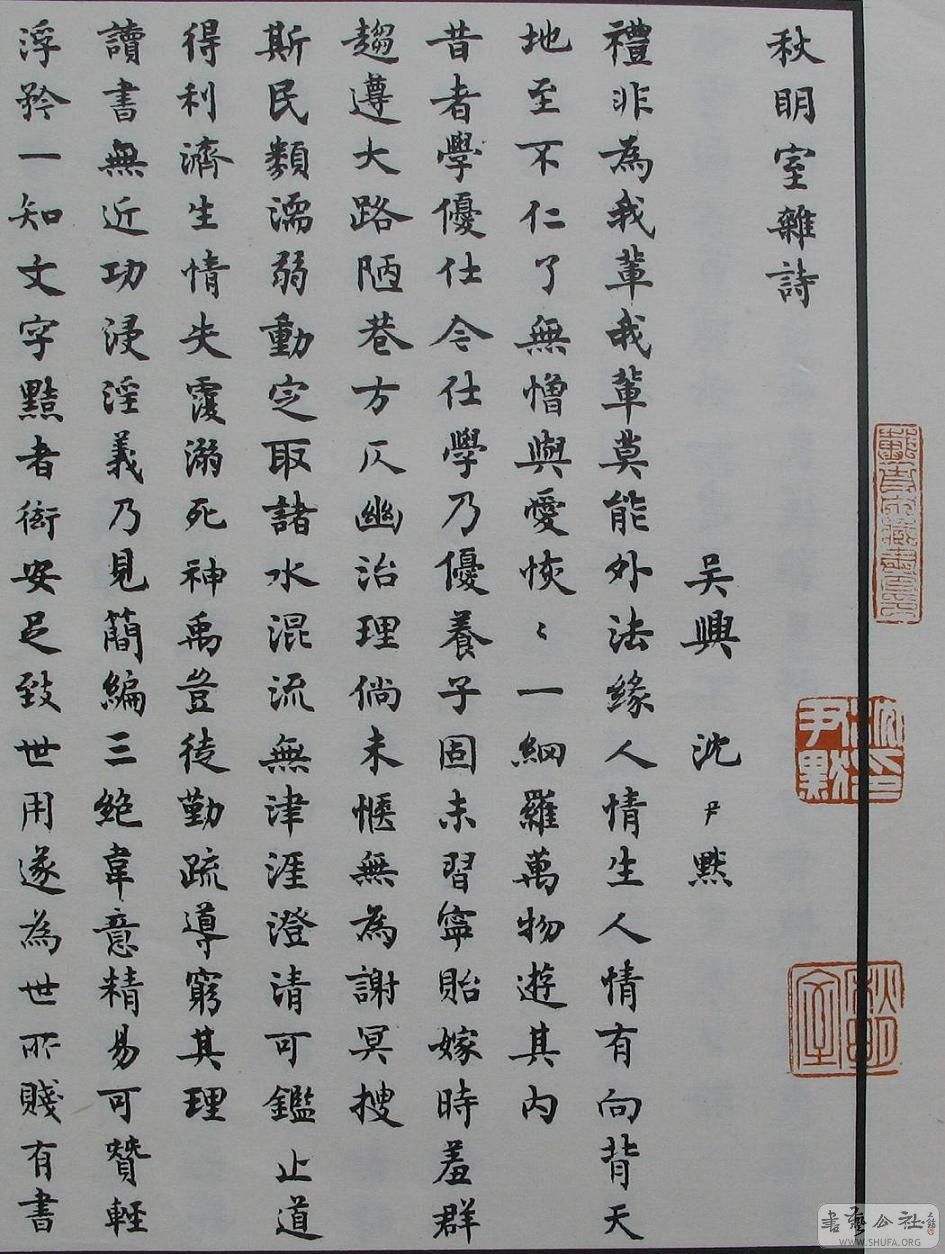 秋明室雜詩
吳興 沈尹默
禮非為我輩我輩莫能外法緣人情生人情有向背天
地至不仁了無憎與愛恢〻一網羅萬物遊其內
昔者學優仕今仕學乃優養子固未習寧貽嫁時羞群
趨遵大路陋巷方仄幽治理倘未愜無為謝冥搜
斯民類濡弱動定取諸水混流無津涯澄清可鑑止道
得利濟生情失覆溺死神禹豈徒勤疏導窮其理
讀書無近功浸淫義乃見簡編三絕韋意精易可贊輕
浮矜一知文字黠者衒安足致世用遂為世所賤有書
沈印尹默
秋明室
書藝公社
WWW.SHUFA.ORG